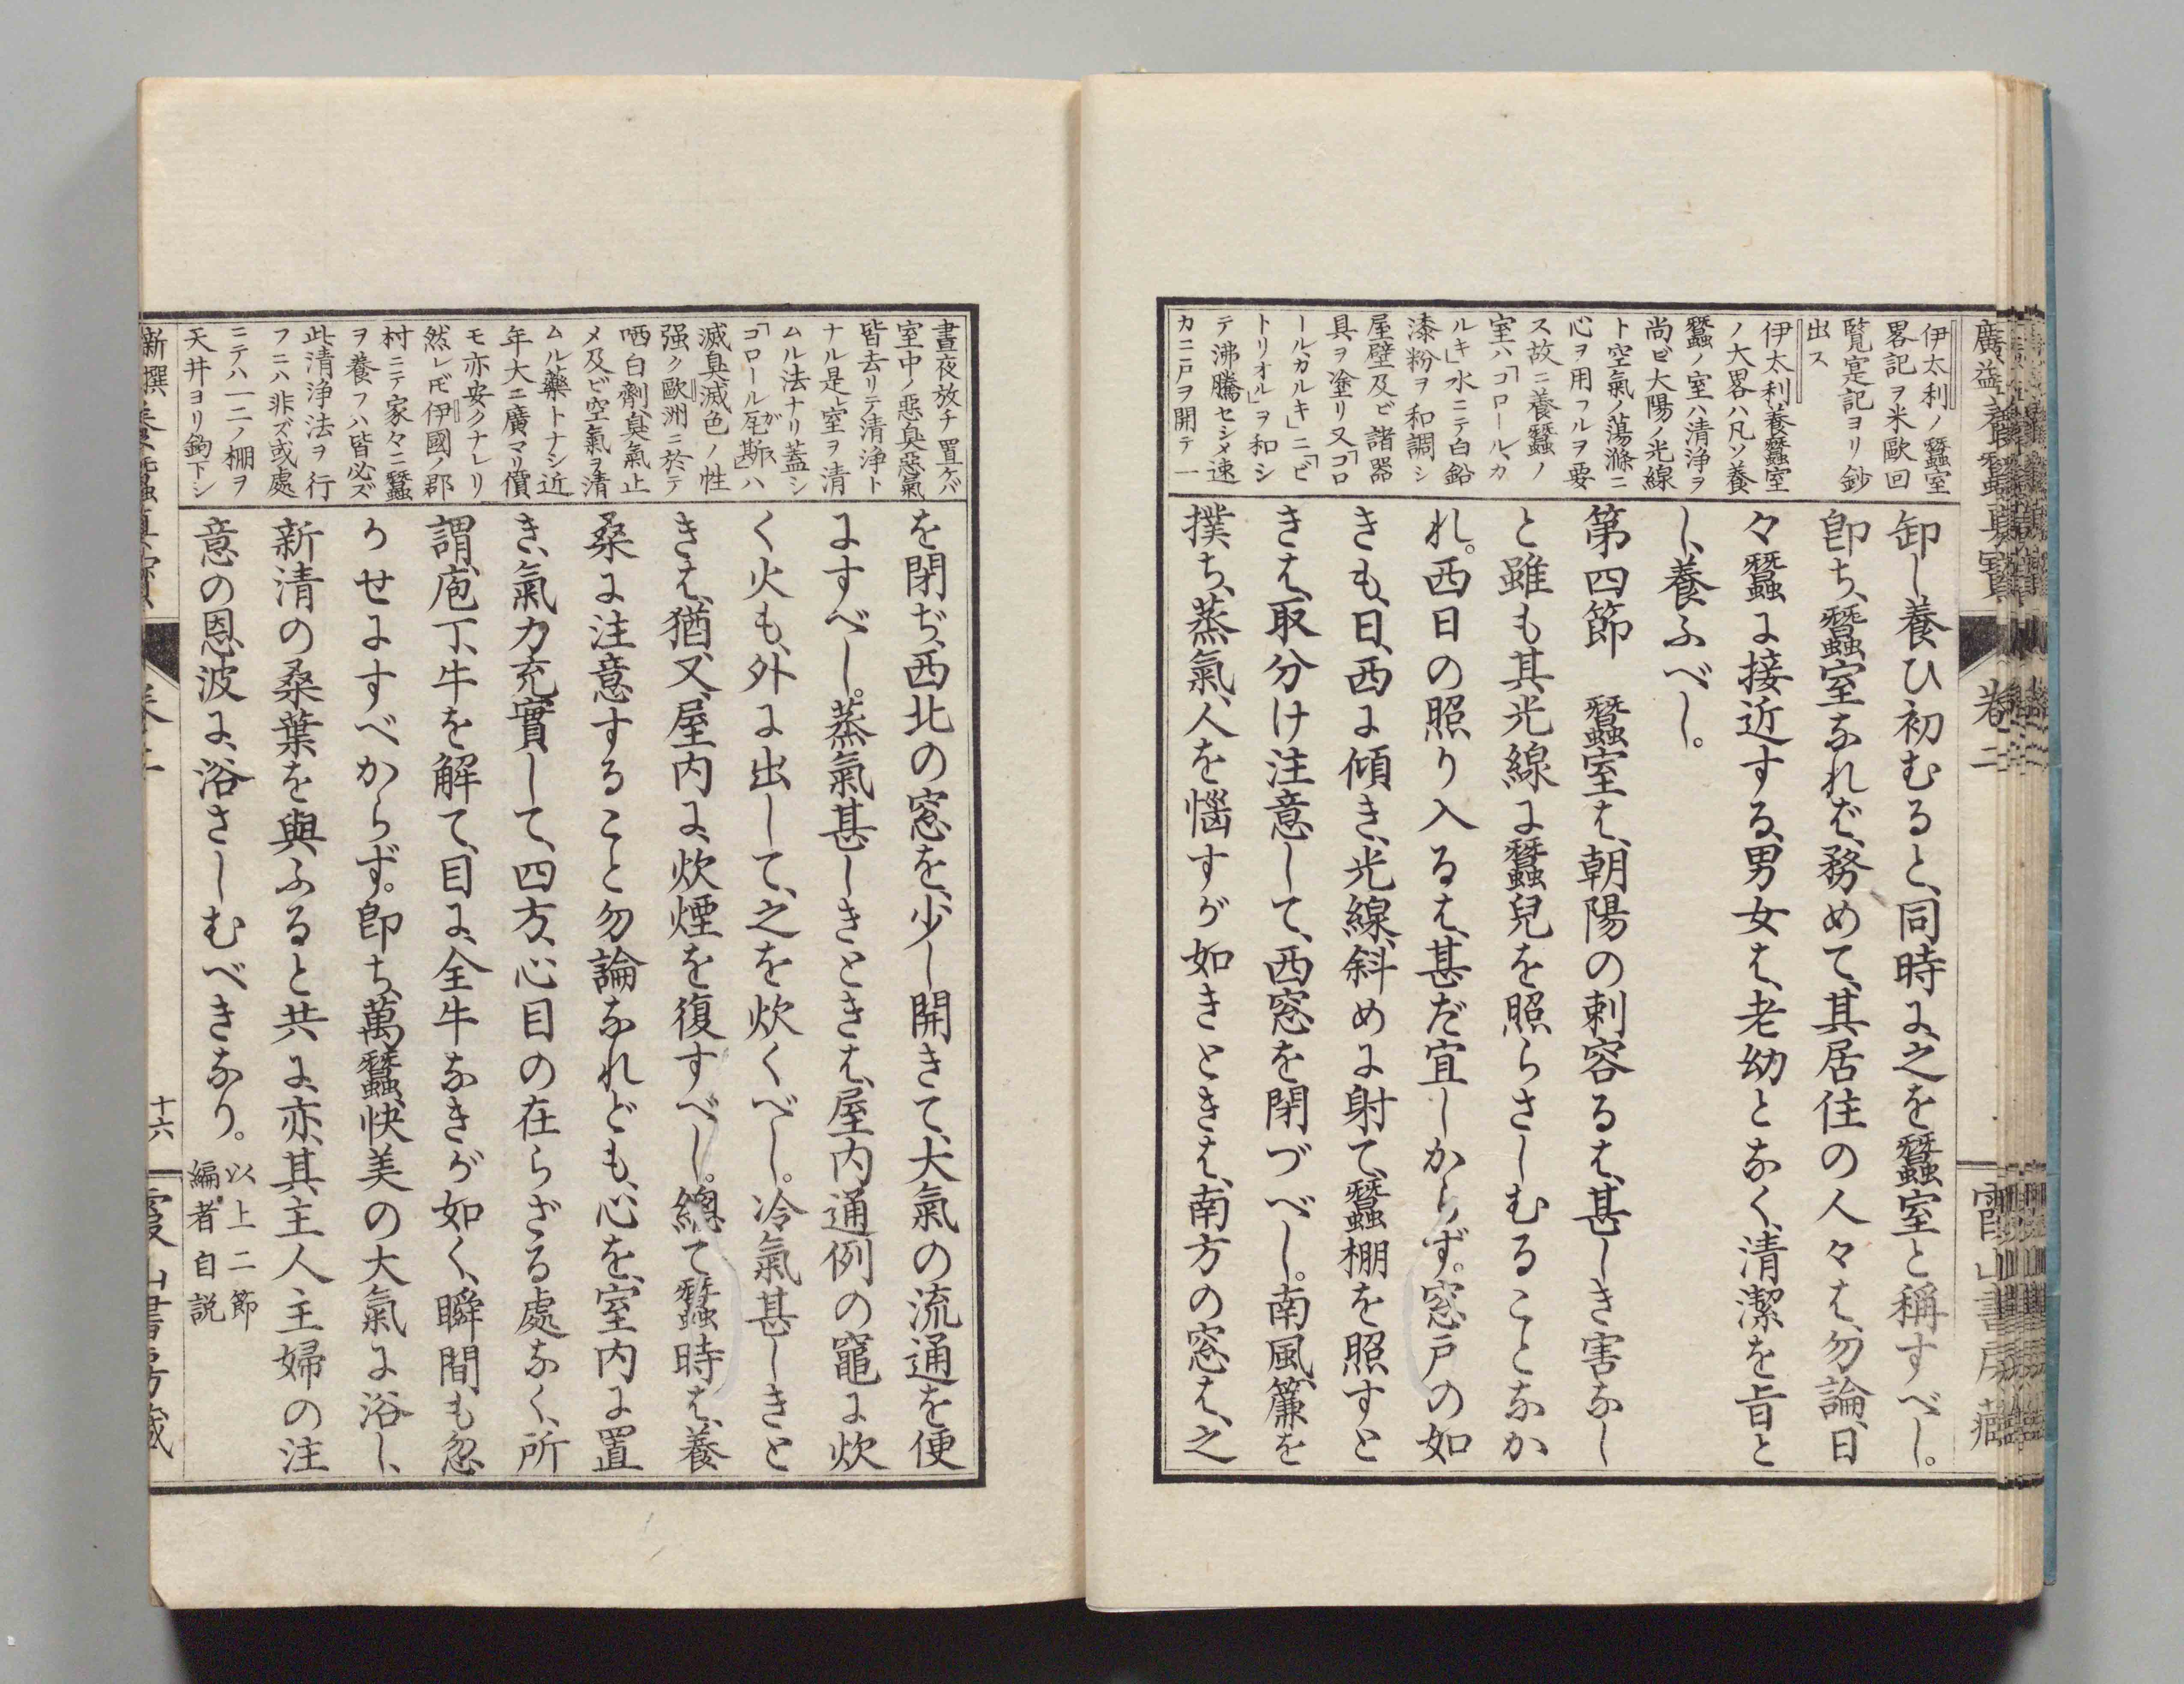 伊太利ノ蠶室
畧記ヲ米歐回
覧寔記ヨリ鈔
出ス
伊太利養蠶室
ノ大畧ハ凡ソ養
蠶ノ室ハ清浄ヲ
尚ビ大陽ノ光線
ト空氣ノ蕩滌ニ
心ヲ用フルヲ要
ス故ニ養蠶ノ
室ハ「コロール、カ
ルキ」水ニテ白鉛
漆粉ヲ和調シ
屋壁及ビ諸器
具ヲ塗リ又「コロ
ールカルキ」ニ「ビ
トリオル」ヲ和シ
テ沸騰セシメ速
カニ戸ヲ開テ一
卸し、養ひ初むると、同時に、之を蠶室と稱すべし。
卽ち、蠶室なれば、務めて、其居住の人々は、勿論、日
々蠶に接近する、男女は、老幼となく、清潔を旨と
し、養ふべし。
第四節　蠶室は、朝陽の刺容るは、甚しき害なし
と雖も其光線に蠶兒を照らさしむることなか
れ。西日の照り入るは、甚だ宜しからず。窓戸の如
きも、日、西に傾き、光線、斜めに射て、蠶棚を照すと
きは、取分け注意して、西窓を閉づべし。南風、簾を
撲ち、蒸氣、人を惱すが如きときは、南方の窓は、之
晝夜放チ置ケバ
室中ノ惡臭惡氣
皆去リテ清浄ト
ナル是レ室ヲ清
ムル法ナリ蓋シ
「コロール瓦斯」ハ
滅臭滅色ノ性
强ク歐洲ニ於テ
晒白劑臭氣止
メ及ビ空氣ヲ清
ムル藥トナシ近
年大ニ廣マリ價
モ亦安クナレリ
然レ𪜈伊國ノ郡
村ニテ家々ニ蠶
ヲ養フハ皆必ズ
此清浄法ヲ行
フニハ非ズ或處
ニテハ一二ノ棚ヲ
天井ヨリ鈎下シ
を閉ぢ、西北の窓を、少し開きて、大氣の流通を便
にすべし。蒸氣甚しきときは、屋内通例の竈に炊
く火も、外に出して、之を炊くべし。冷氣甚しきと
きは、猶又、屋内に、炊煙を復すべし。總て蠶時は、養
桑に注意すること勿論なれども、心を、室内に置
き、氣力充實して、四方、心目の在らざる處なく、所
謂、庖丁、牛を解て、目に、全牛なきが如く、瞬間も忽
りせにすべからず。卽ち、萬蠶、快美の大氣に浴し、
新清の桑葉を與ふると共に、亦、其主人主婦の注
意の恩波に、浴さしむべきなり。
以上二節
編者自説
十六